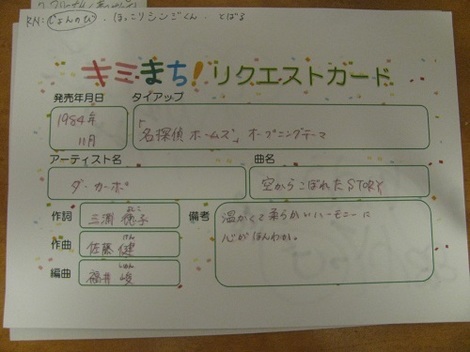 RN: じょんのび・ほっこりシンごくん・とばる
キミまち！リクエストカード
発売年月日 タイアップ
1984年
11月
「名探偵ホームズ」オープニングテーマ
アーティスト名 曲名
ダ・カーポ 空からこぼれたSTORY
作詞 三浦徳子 よしこ 備考
温かくて柔らかいハーモニーに
心がほんわか。
作曲 佐藤健 けん
編曲 福井峻 しゅん